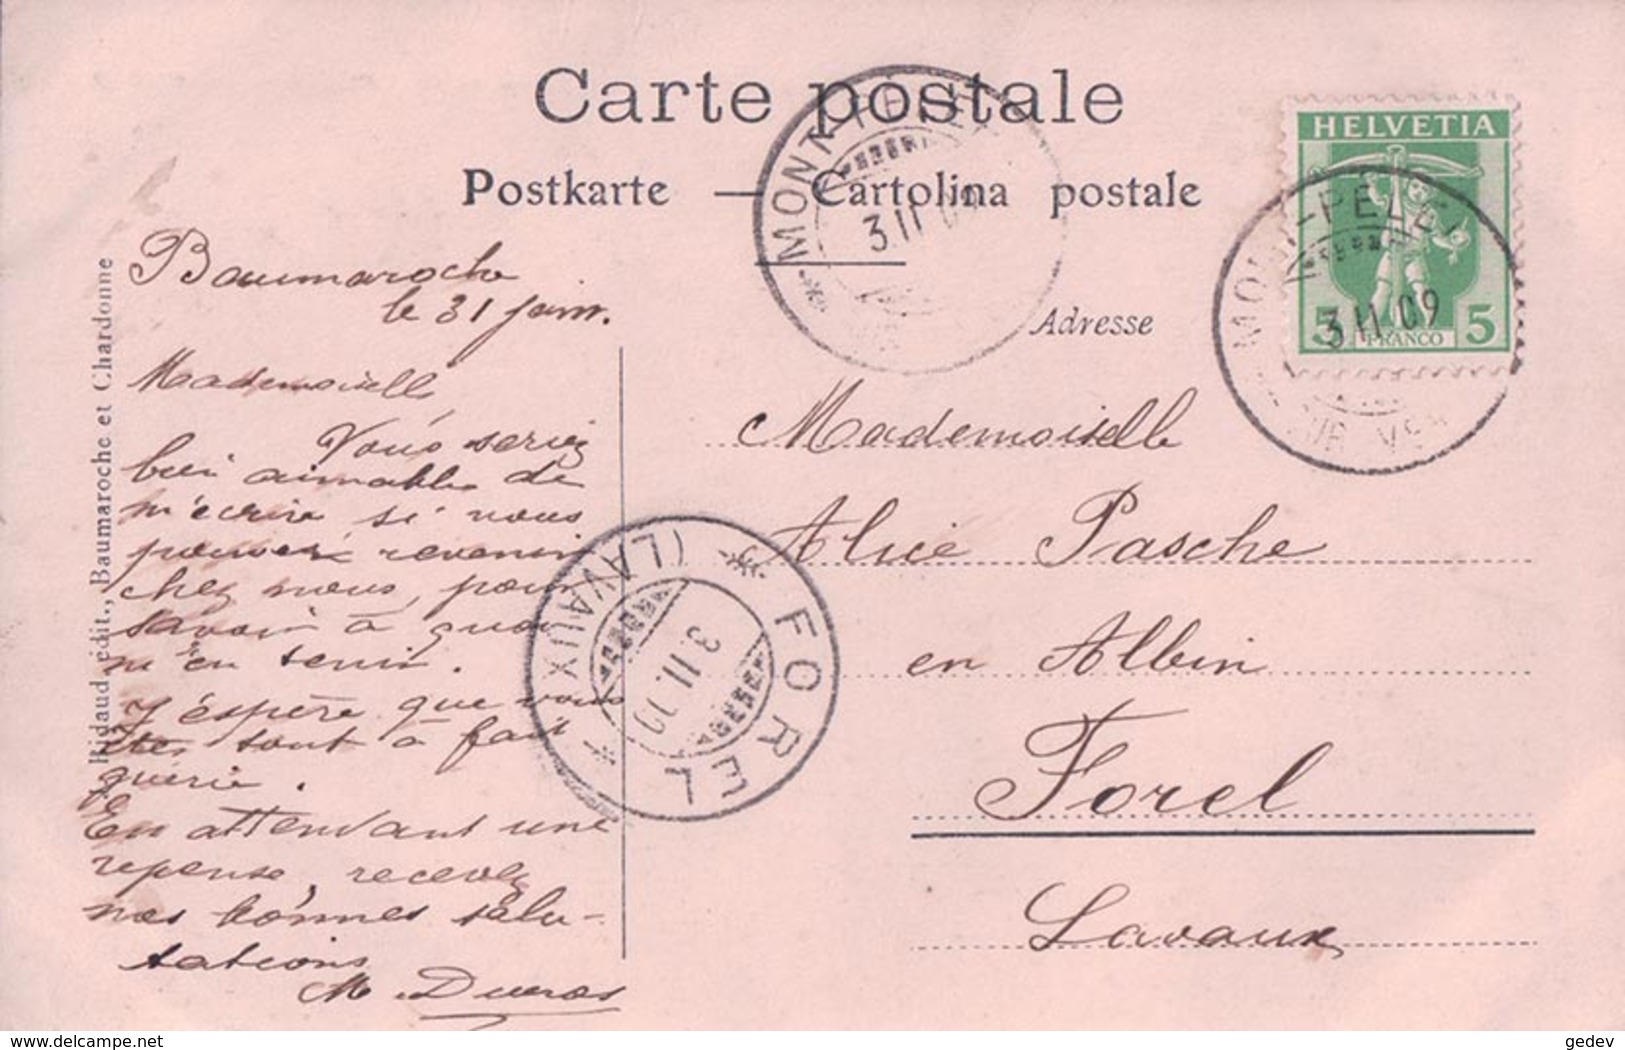 Carte postale
Postkarte — Cartolina postale
HELVETIA
5 5
FRANCO
MONT-PELERIN
3 II 09
MONT-PELERIN
3 II 09
SUR VEVEY
Adresse
Baumaroche
le 31 janv.
Mademoiselle
Vous seriez
bien aimable de
m'écrire si vous
pouvez revenir
chez nous, pour
savoir à quoi
m'en tenir.
J'éspère que vous
êtes tout à fait
guérie.
En attendant une
reponse, recevez
nos bonnes salu-
tations
Mademoiselle
Alice Pasche
en Albin
Forel
Lavaux
FOREL (LAVAUX)
3.II.09
Ridaud édit., Baumaroche et Chardonne
www.delcampe.net
gedev